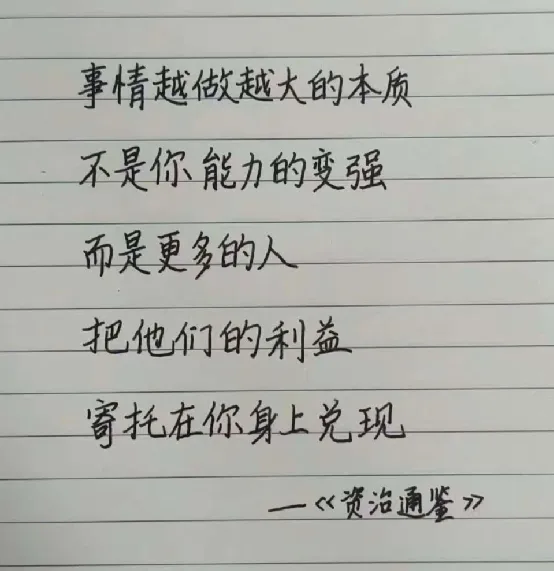 事情越做越大的本质
不是你能力的变强
而是更多的人
把他们的利益
寄托在你身上兑现
—《资治通鉴》